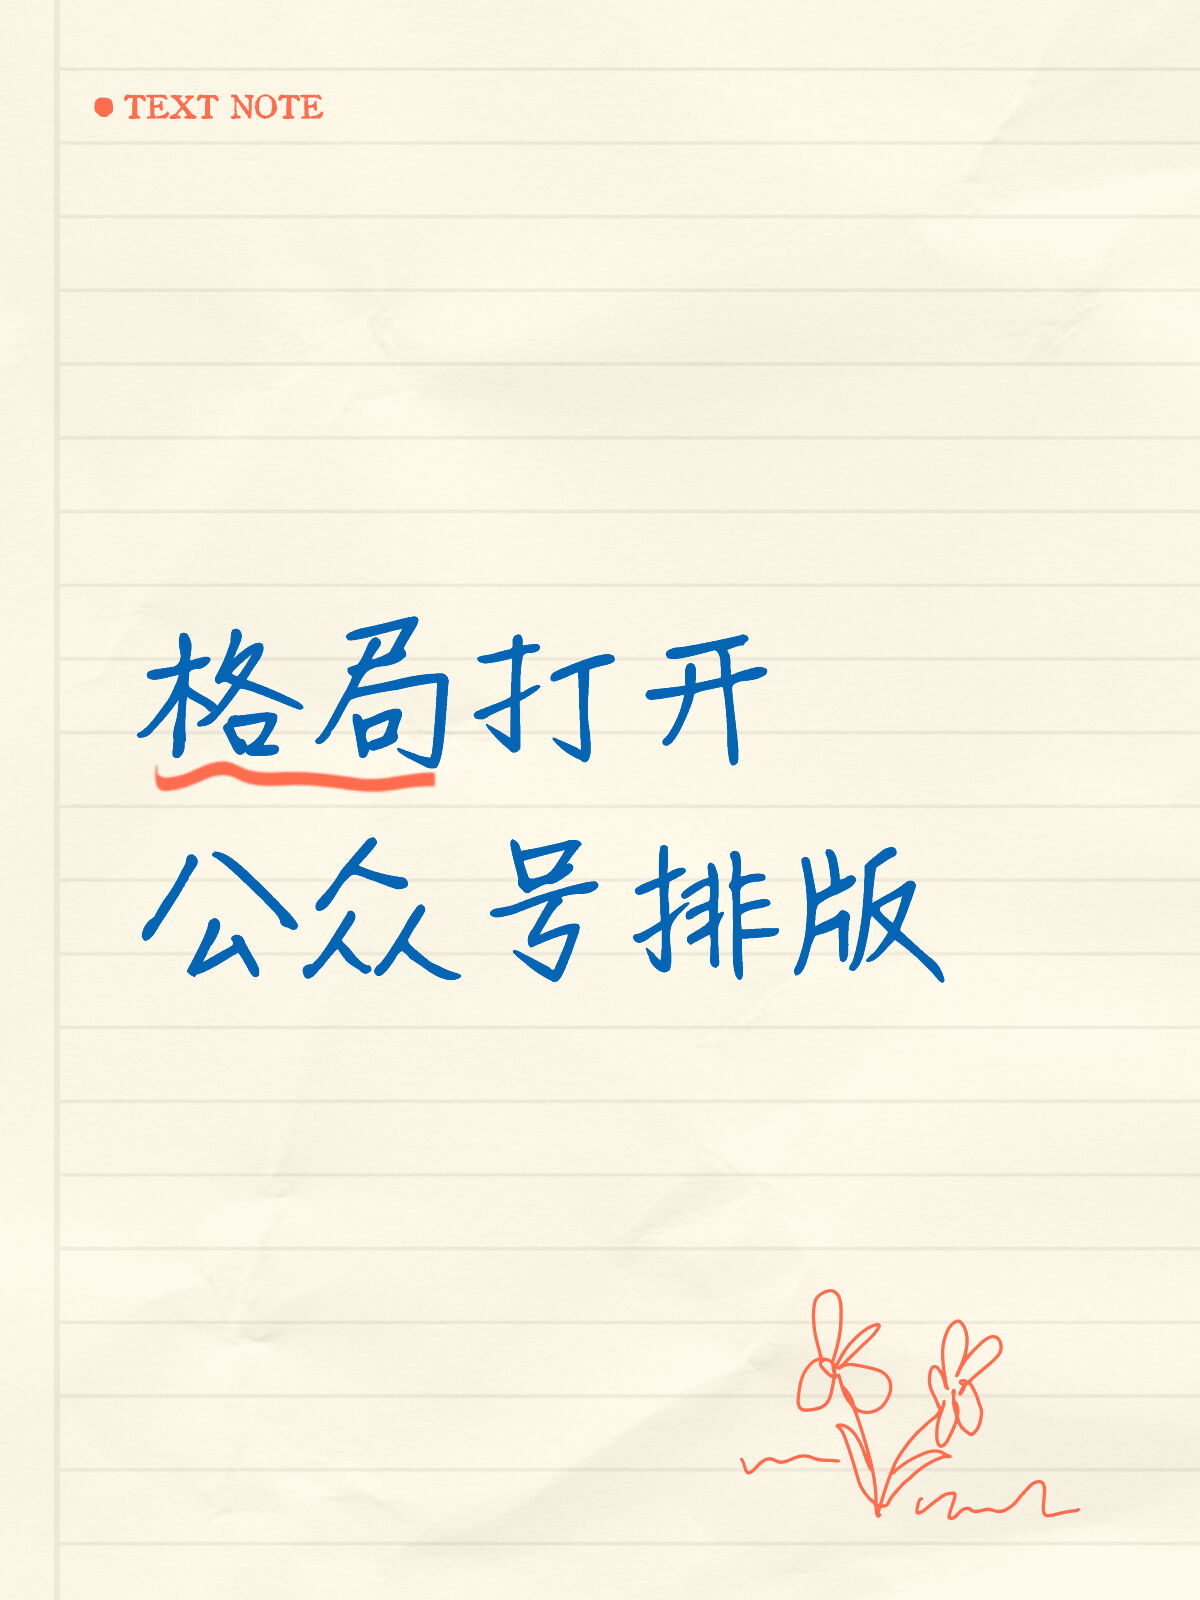 TEXT NOTE
格局打开
公众号排版